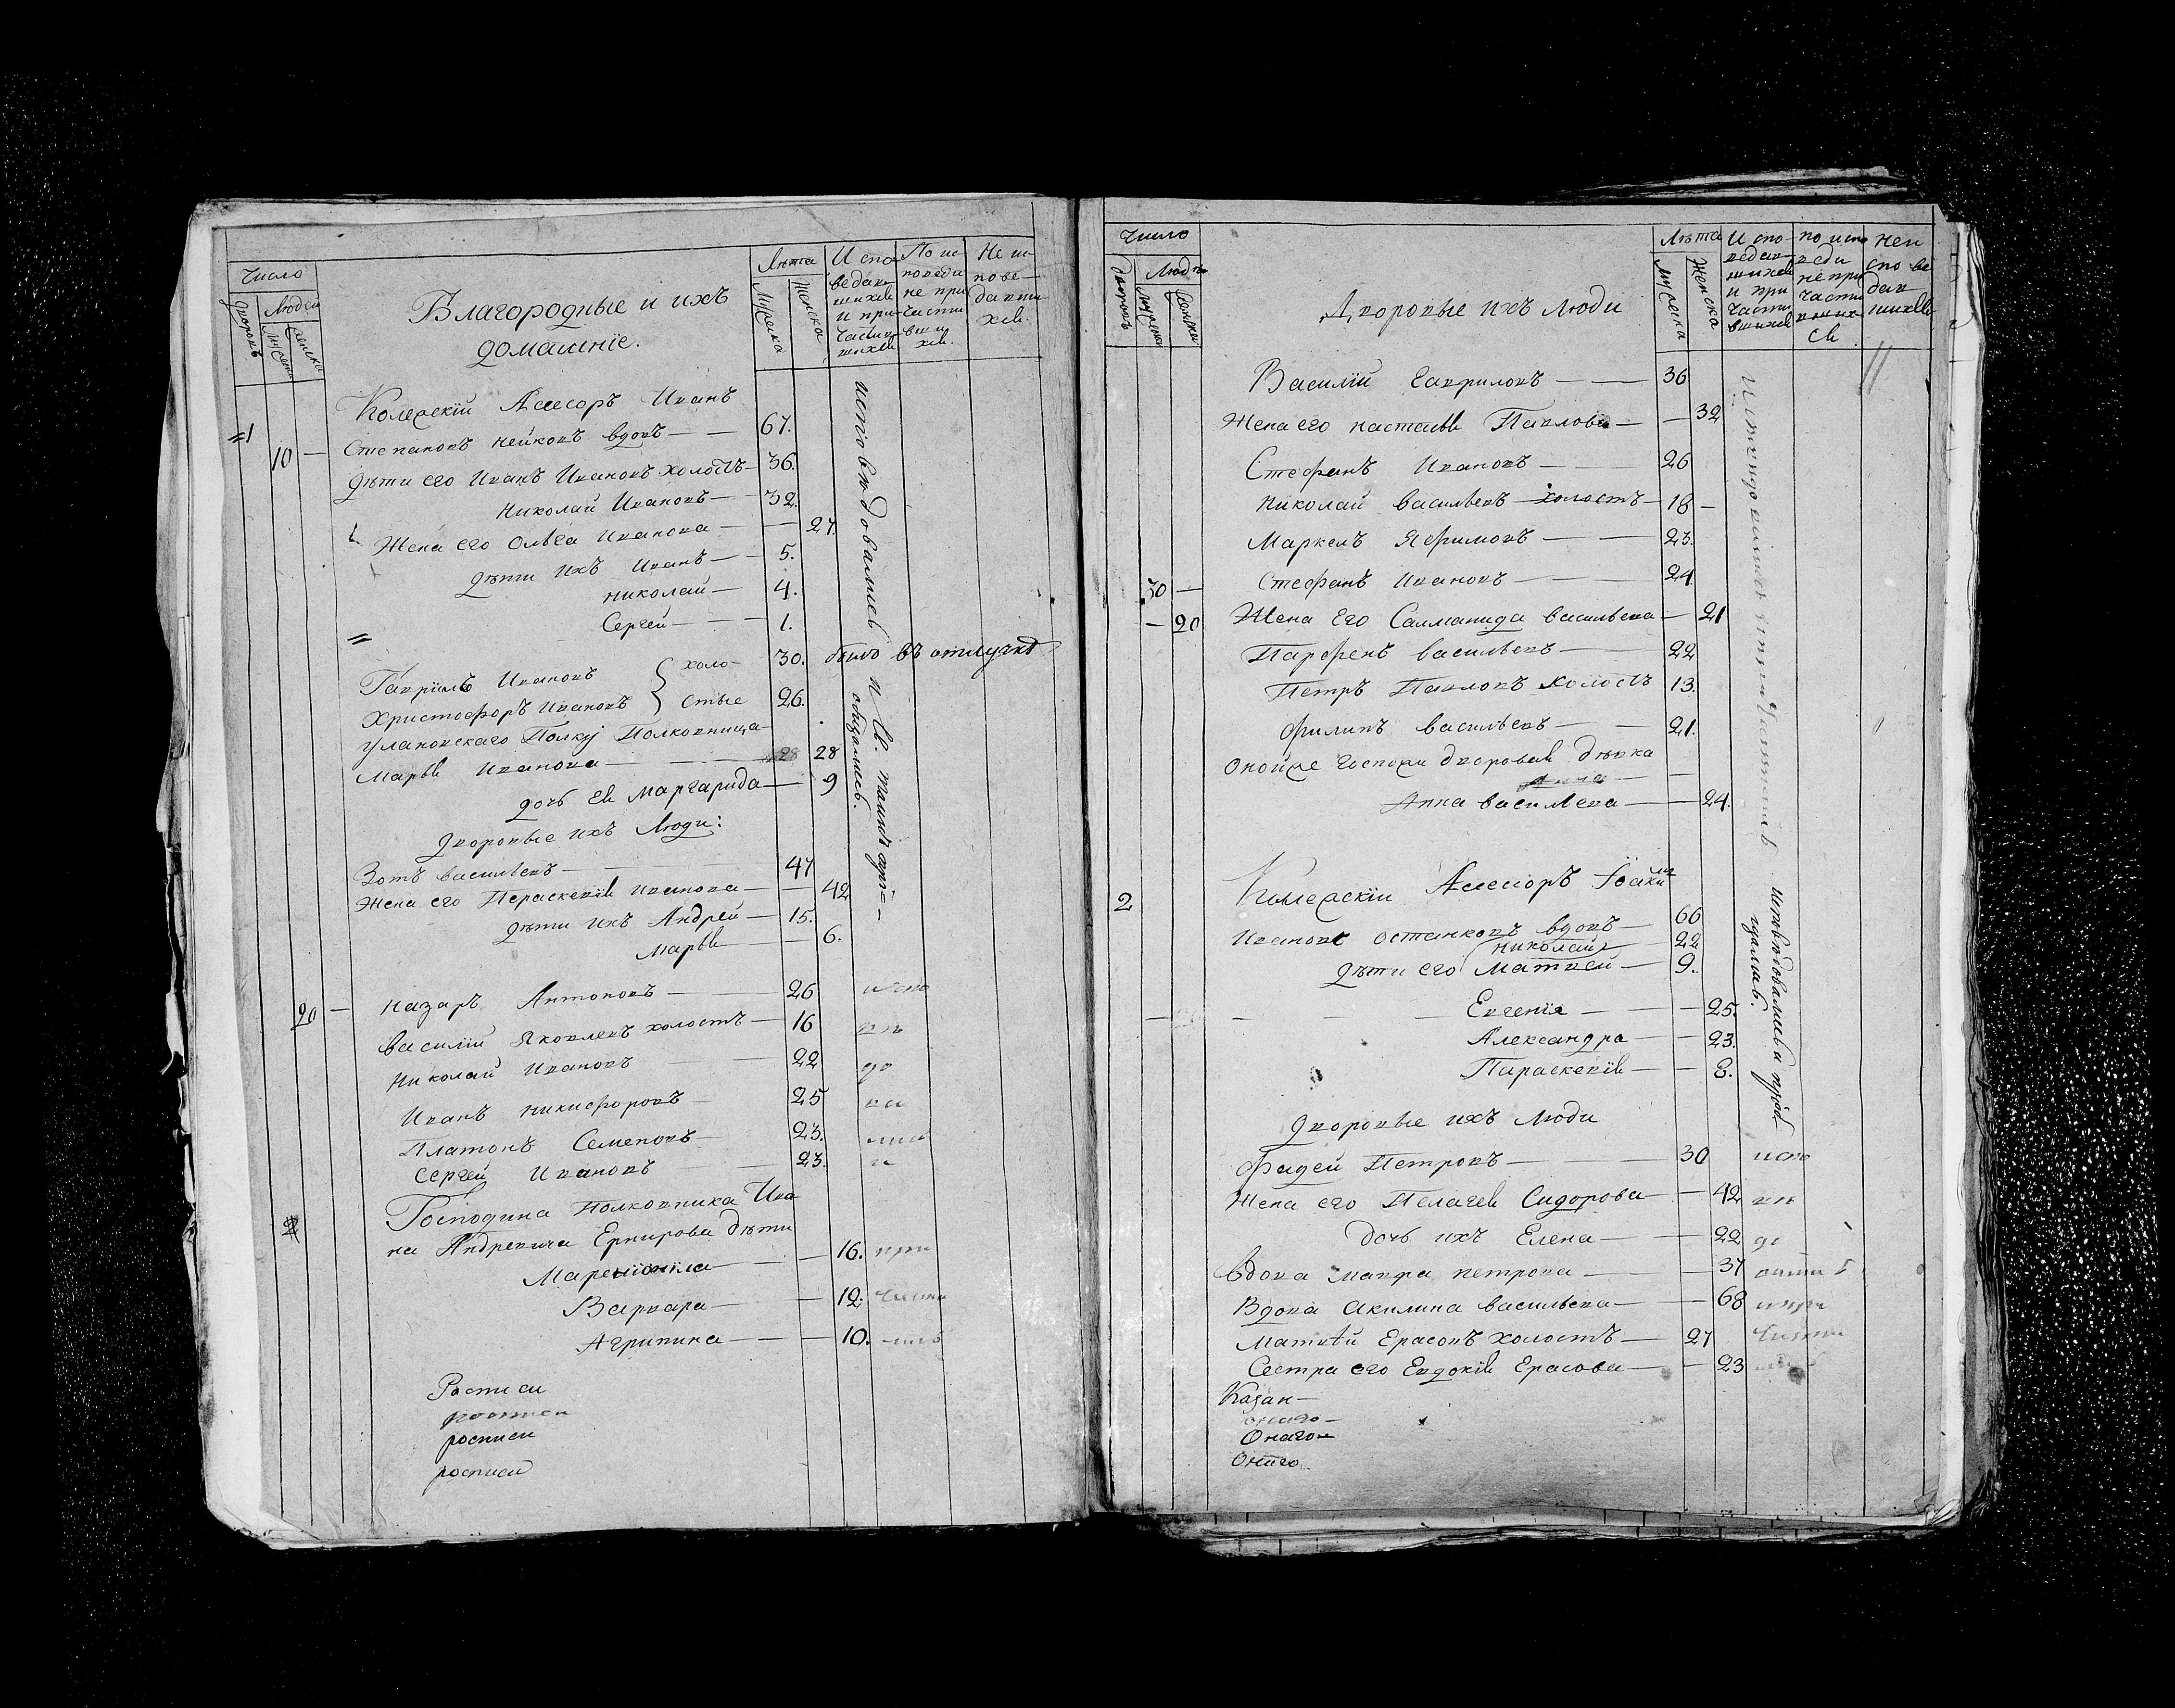 Число
Дворовъ
Людей
Мужеска
Женска
Благородные и ихъ
домашніе.
Лѣта
Мужеска
Женска
Испо-
ведав-
шихся
и при-
частив-
шихся
По ис-
поведи
не при
части
вших
хся.
Не ис-
пове-
давши-
хся.
Колежскій Асессоръ Иванъ
=1
Степановъ Нейковъ вдовъ — 67.
10 —
дѣти его Иванъ Ивановъ холостъ — 36.
Николай Ивановъ — 32.
Жена его Ольга Иванова — 27.
дѣти ихъ Иванъ — 5.
Николай — 4.
Сергей — 1.
Гавріилъ Ивановъ } холо- 30. было въ отлучкѣ
Христофоръ Ивановъ } стые 26.
Улановскаго Полку Полковница
Марья Иванова — 28 28
дочь Ея Маргарида — 9
дворовые ихъ Люди:
Зотъ Васильевъ — 47
Жена его Пераскевія Иванова — 42
дѣти ихъ Андрей — 15.
Марья — 6.
Назаръ Антоновъ — 26 испо
20 —
Василій Яковлевъ холостъ — 16 вѣ
Николай Ивановъ — 22 до
Иванъ Никифоровъ — 25 ва
Платонъ Семеновъ — 23. лись
Сергей Ивановъ — 23. и
Господина Полковника Ива
на Андреевича Ернирова дѣти
— 16. при
Варвара — 12. части
Агрипина — 10. лись
исповѣдовались и св. таинъ прі-
общались.
Росписи
росписи
росписи
росписи
Число
Дворовъ
Людей
Мужеска
Женска
Дворовые ихъ Люди
Лѣта
Мужеска
Женска
Испо-
ведав-
шихся
и при
части
вшихся
по испо
веди
не при
части
вших
ся
Неи
спове
дав
шихся
Василій Гавриловъ — 36
Жена его настасья Павлова — 32
Стефанъ Ивановъ — 26
Николай Васильевъ холостъ — 18 —
Маркелъ Яфимовъ — 23.
30 — Стефанъ Ивановъ — 24
— 20 Жена Его Салманида Васильева — 21
Парфенъ Васильевъ — 22
Петръ Павловъ холостъ 13.
Филипъ Васильевъ — 21.
Оной же Госпожи дворовая дѣвка
Анна —
Анна Васильева — 24.
исповѣдовались и причастились
2 Колежскій Асессоръ Іоакимъ
Ивановъ Останковъ вдовъ — 66
Николай 22
дѣти его Матвей — 9.
Евгенія — 25.
Александра — 23.
Параскевія — 8.
исповѣдовались и пріоб
щались.
дворовые ихъ Люди
Фадей Петровъ — 30 испо
Жена его Пелагея Сидорова — 42 вѣ
дочь ихъ Елена — 22 до
Вдова Мавра Петрова — 37
Вдова Акилина Васильева — 68 и при
Матвѣй Ерасовъ холостъ — 27 части
Сестра его Евдокія Ерасова — 23
Казан —
онаго —
Онаго —
Онаго